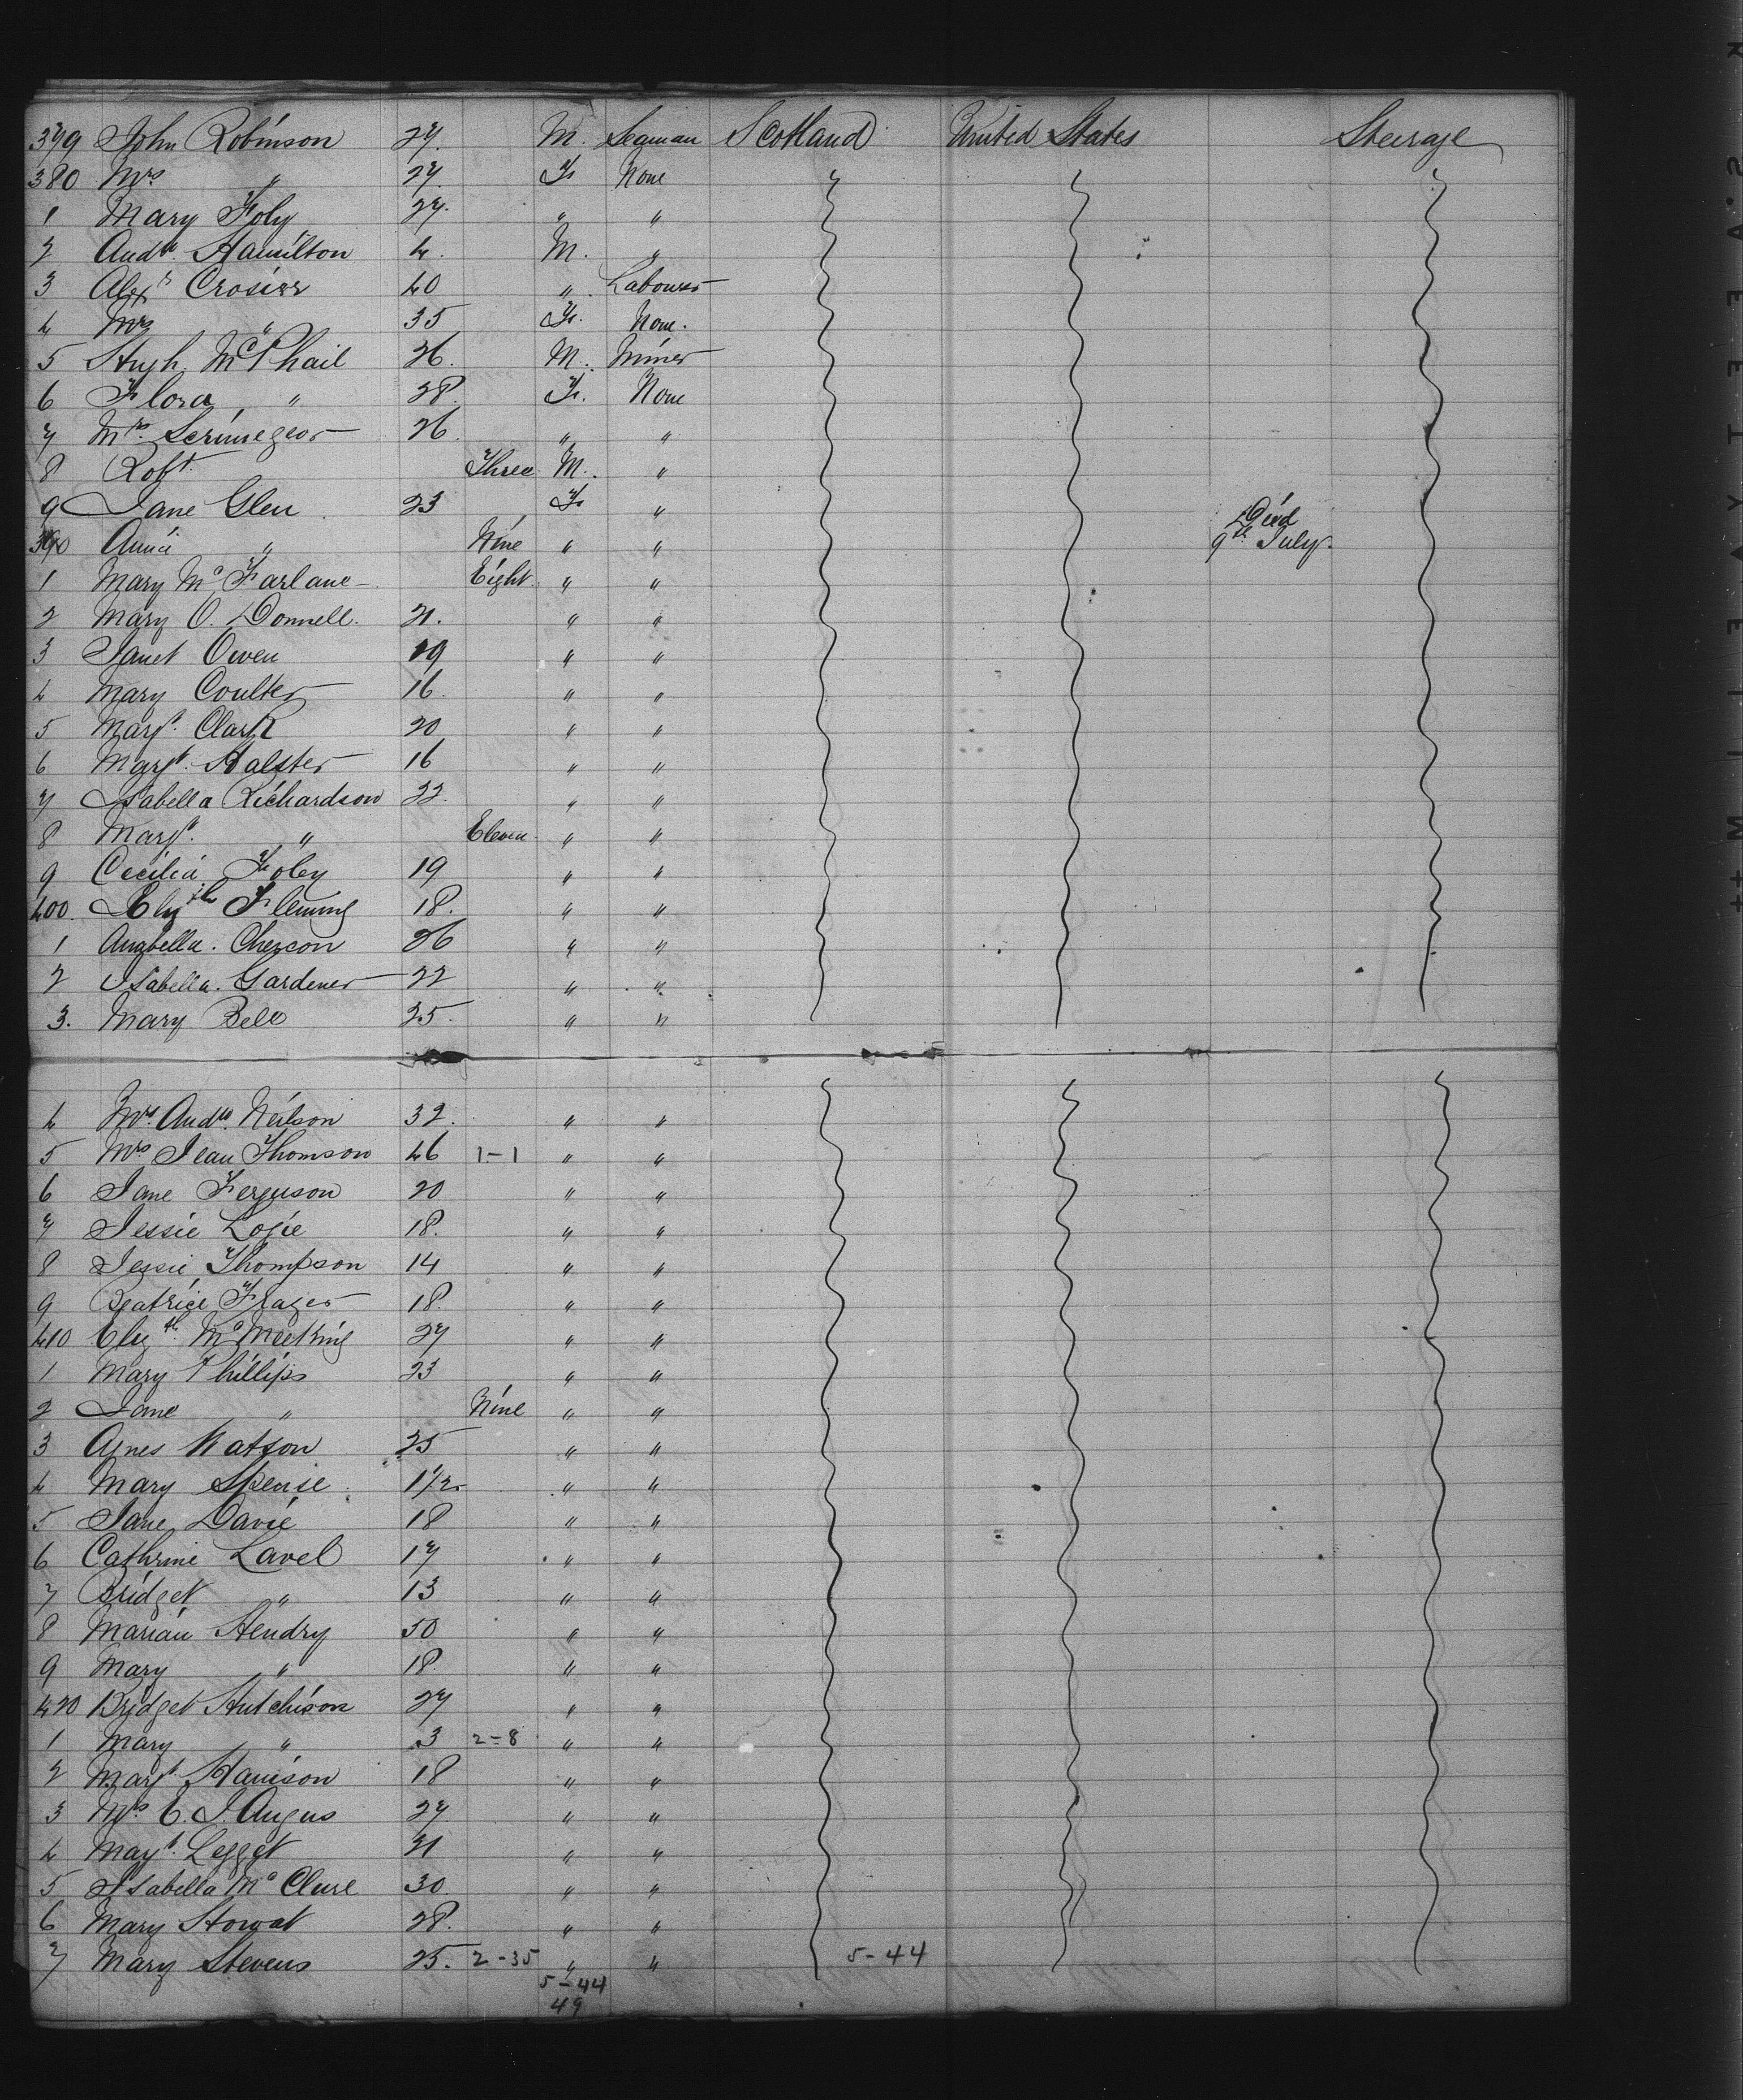 379 John Robinson 27. M. Seaman Scotland United States Steerage
380 Mrs " 27. F. None
1 Mary Foly 27. " "
2 Andw. Hamilton 4. M. "
3 Alexr Crosier 40 " Labourer
4 Mrs " 35 F. None.
5 Hugh McPhail 26. M. Miner
6 Flora " 28. F. None
7 Mrs. Scrimegeor 26. " "
8 Robt. Three M. "
9 Jane Glen 23 F. "
390 Annie " Nine " " Died 9th July.
1 Mary McFarlane Eight " "
2 Mary O. Donnell. 21. " "
3 Janet Owen 19 " "
4 Mary Coulter 16. " "
5 Margt. Clark 20 " "
6 Margt. Halster 16 " "
7 Isabella Richardson 22. " "
8 Margt. " Eleven " "
9 Cecilia Foley 19 " "
400. Elizth Fleming 18. " "
1 26 " "
2 Isabella. Gardener 22 " "
3. Mary Bell 25. " "
4 Mrs. Andw. Neilson 32. " "
5 Mrs Jean Thomson 46 1-1 " "
6 Jane Ferguson 20 " "
7 Jessie Logie 18. " "
8 Jessie Thompson 14 " "
9 Beatrice Frazer 18. " "
410 Elizth. McMeeking 27 " "
1 Mary Phillips 23 " "
2 Jane " Nine " "
3 Agnes Watson 25 " "
4 Mary Spense 1 1/2 " "
5 Jane Davie 18 " "
6 Cathrine Lavel 17 " "
7 Bridget " 13 " "
8 Marian Hendry 50 " "
9 Mary " 18. " "
420 Bridget Hutchison 27 " "
1 Mary " 3 2-8 " "
2 Margt. Hanison 18 " "
3 Mrs E. J. Angus 27. " "
4 Margt. Legget 21 " "
5 Isabella McClure 30. " "
6 Mary Howat 28. " "
7 Mary Stevens 25. 2-35 " " 5-44
5-44
49